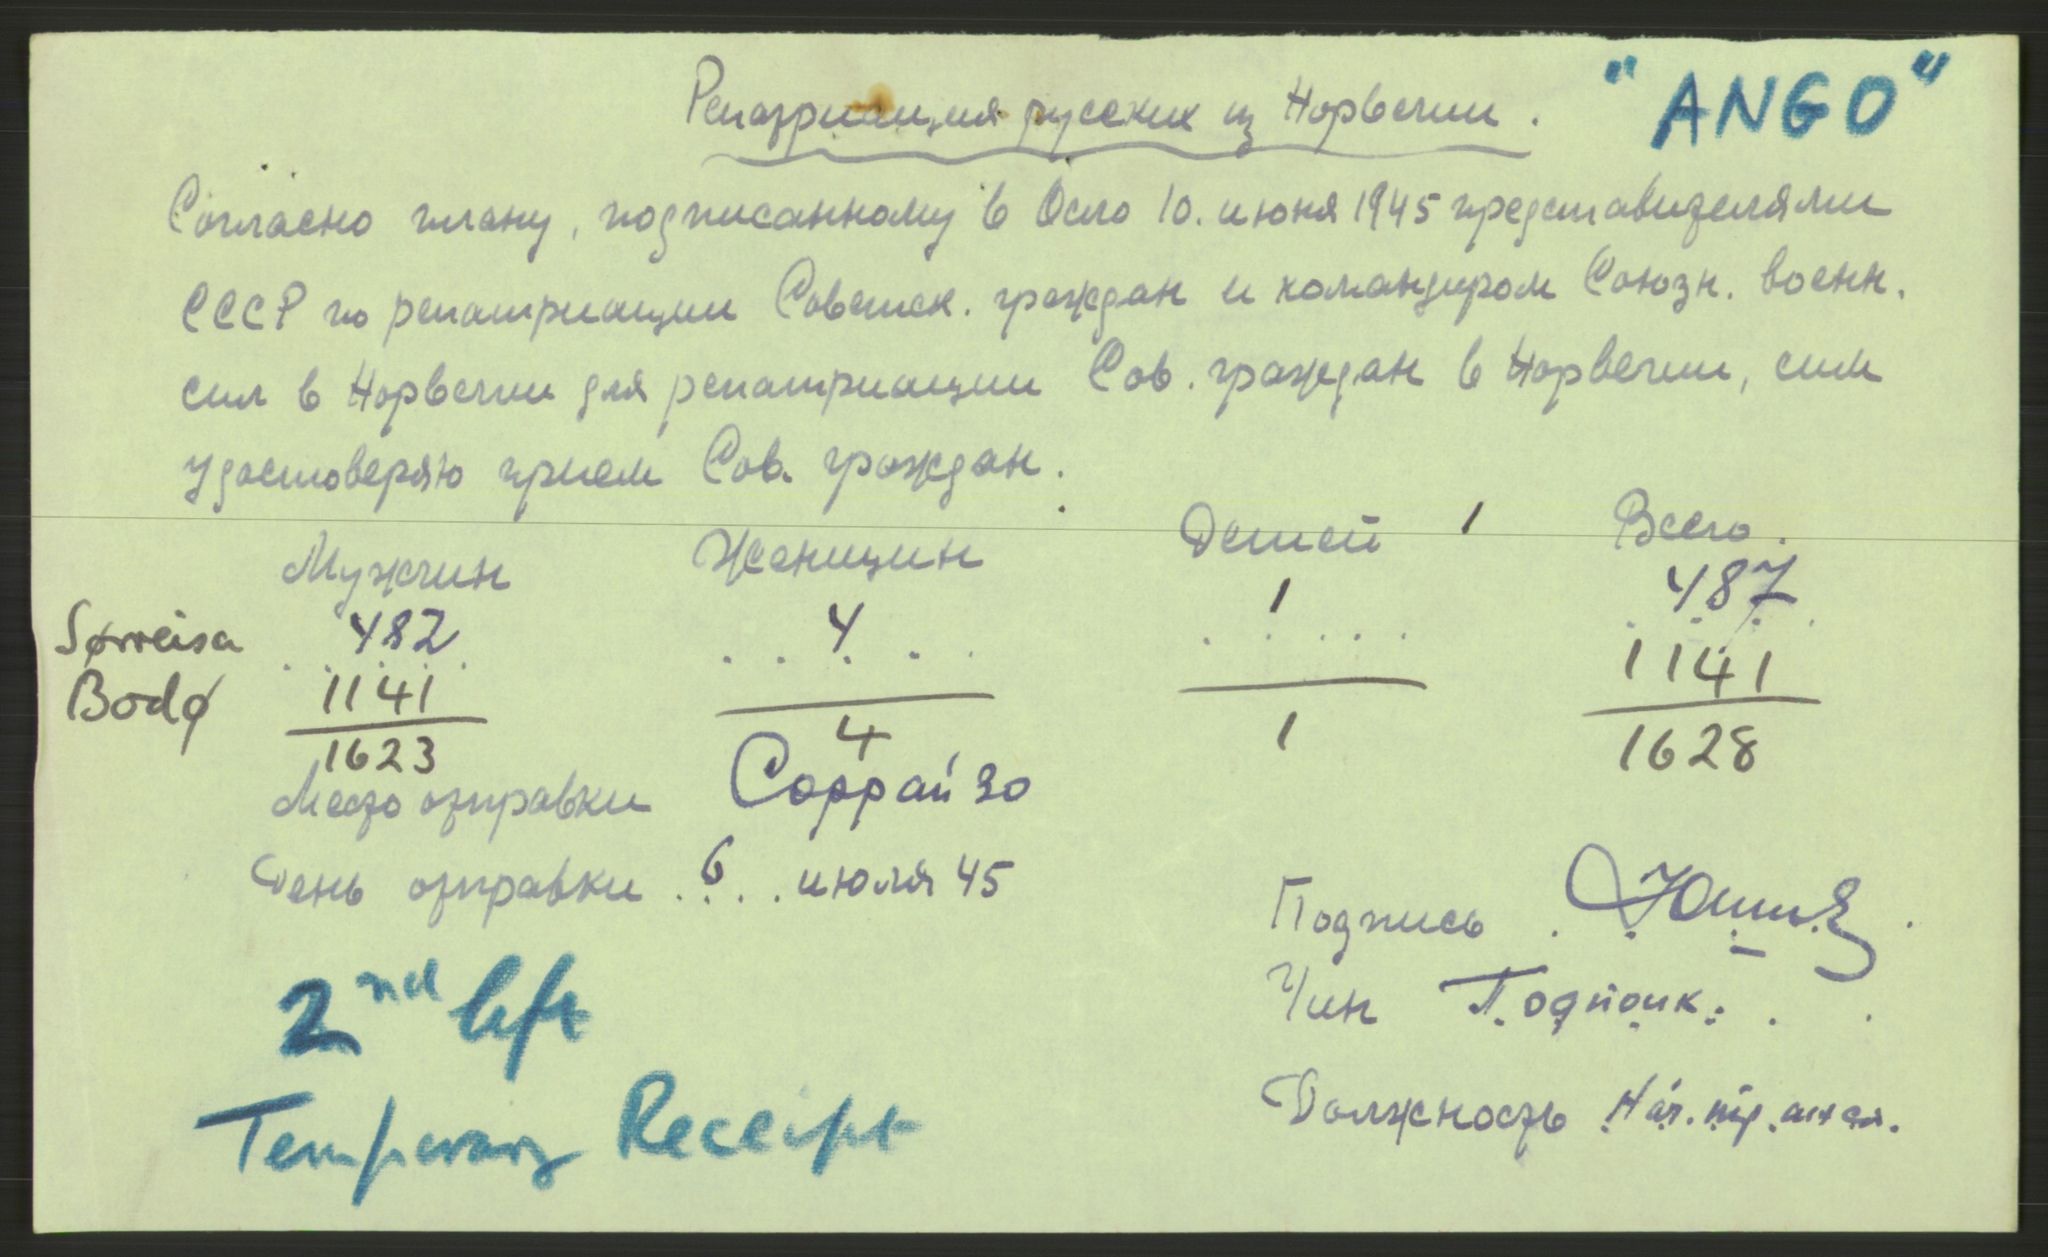 "ANGO"
Репатриация русских из Норвегии.
Согласно плану, подписанному в Осло 10. июня 1945 представителями
СССР по репатриации Советск. граждан и командиром Союзн. воен.
сил в Норвегии для репатриации Сов. граждан в Норвегии, сим
удостоверяю прием Сов. граждан.
Мужчин Женщин Детей 1 Всего.
Sørreisa 482 4 1 487
Bodø 1141 1141
1623 4 1 1628
Место отправки Соррайзо
День отправки 6 июля 45
Подпись
Чин Подполк.
Должность Нач.
2nd lift
Temporary Receipt